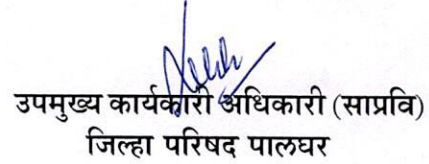 उपमुख्य कार्यकारी अधिकारी (साप्रवि)
जिल्हा परिषद पालघर